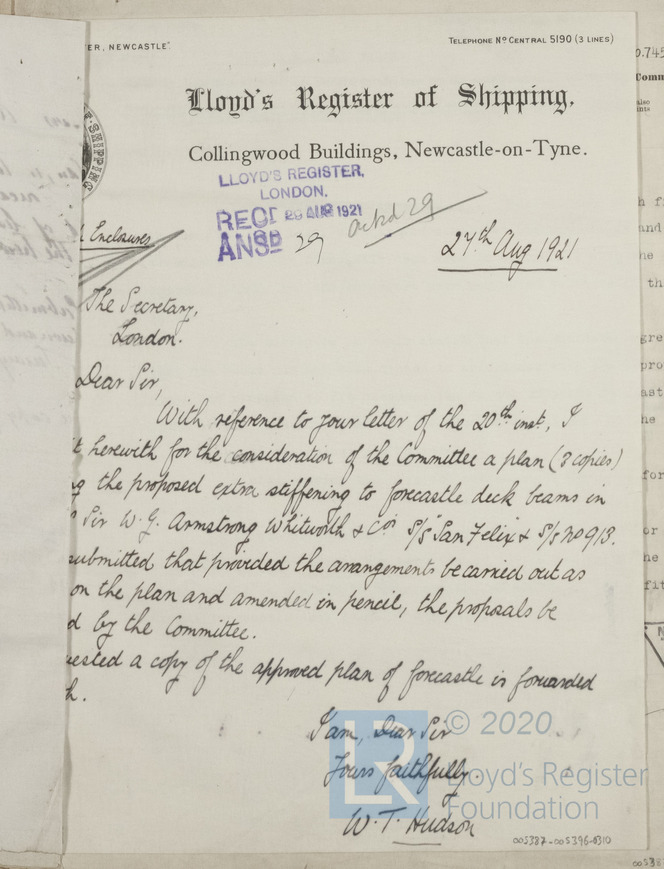 ER, NEWCASTLE".
TELEPHONE No CENTRAL 5190 (3 LINES)
Lloyd's Register of Shipping.
Collingwood Buildings, Newcastle-on-Tyne.
LLOYD'S REGISTER,
LONDON.
RECD 29 AUG 1921
ANSD 29
29
Enclosures
27th Aug 1921
The Secretary,
London.
Dear Sir,
With reference to your letter of the 20th inst, I
t herewith for the consideration of the Committee a plan (3 copies)
g the proposed extra stiffening to forecastle deck beams in
Sir W. G. Armstrong Whitworth & Cos S/S "San Felix" & S/S No 913.
submitted that provided the arrangements be carried out as
on the plan and amended in pencil, the proposals be
d by the Committee.
uested a copy of the approved plan of forecastle is forwarded
h.
I am, Dear Sir
Yours faithfully.
W. T. Hudson
LR
© 2020
Lloyd's Register
Foundation
005387-005396-0310
SHIPPING